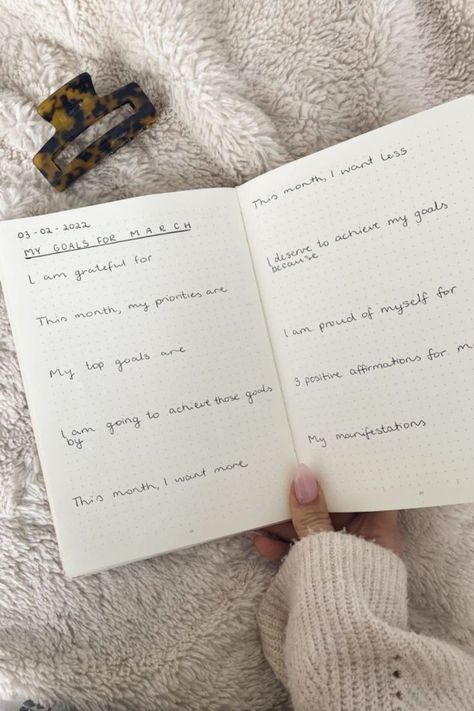 03-02-2022
MY GOALS FOR MARCH
I am grateful for
This month, my priorities are
My top goals are
I am going to achieve those goals
by
This month, I want more
This month, I want less
I deserve to achieve my goals
because
I am proud of myself for
3 positive affirmations for
My manifestations